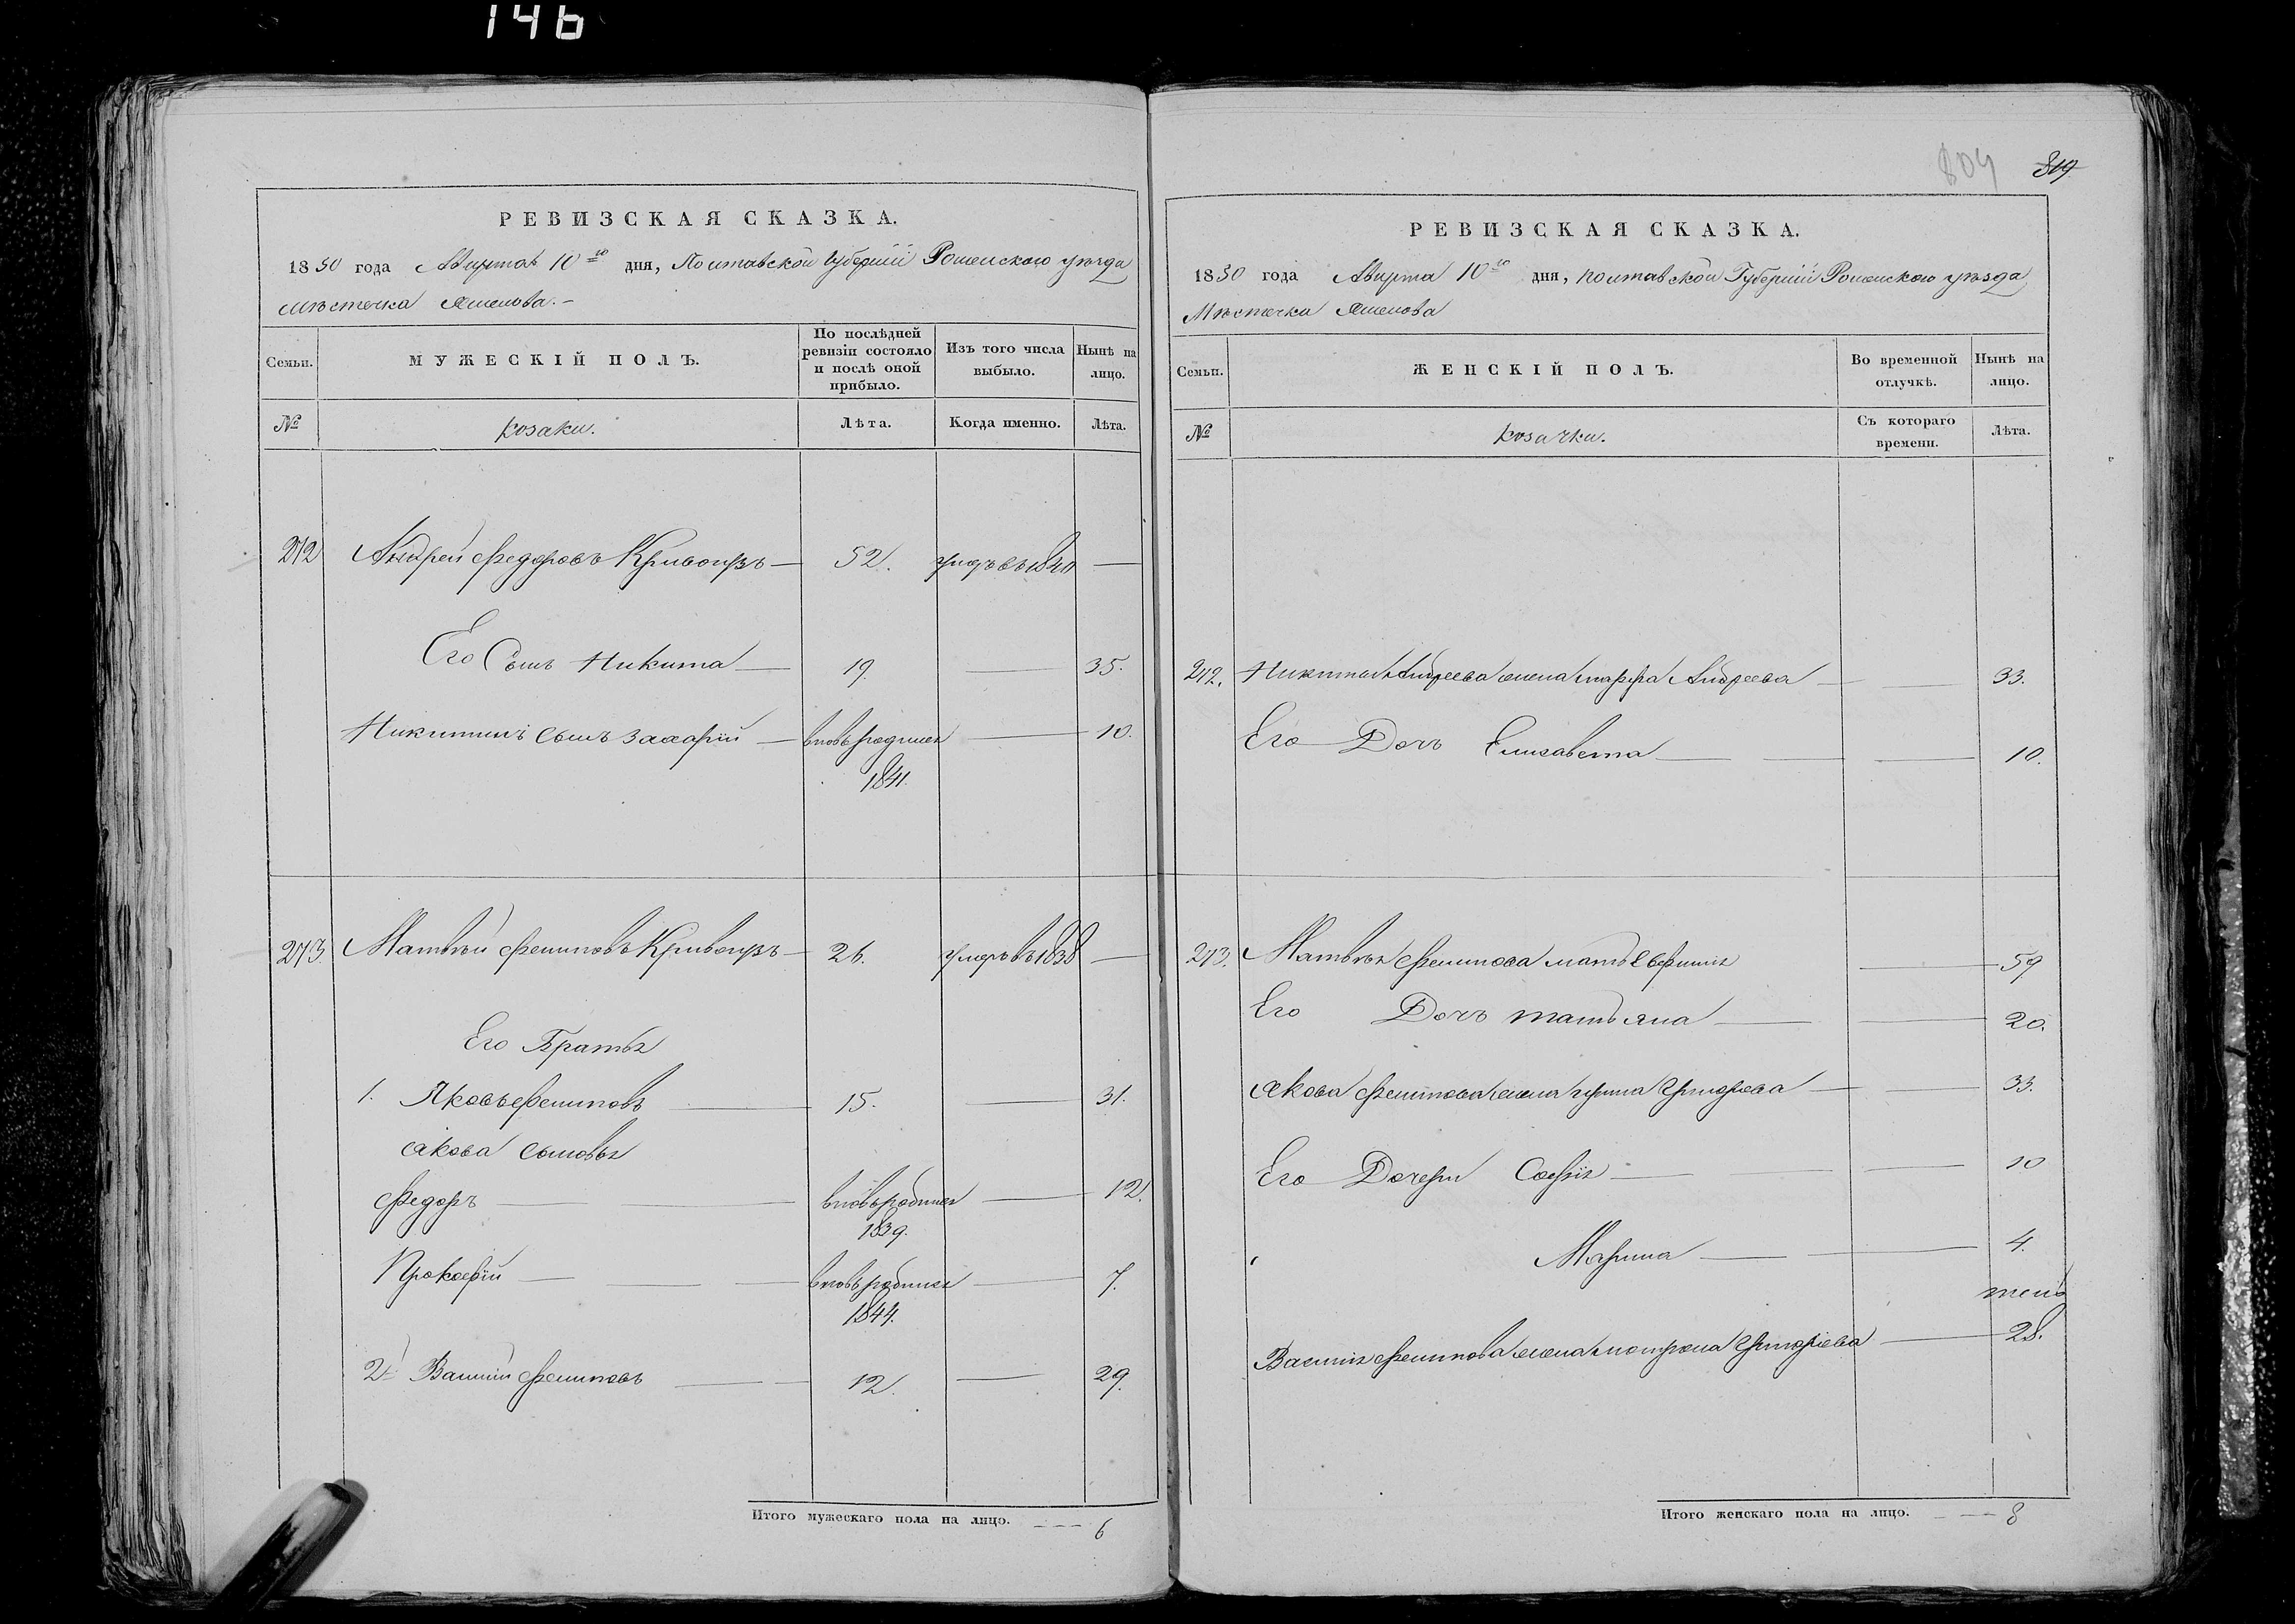 146
РЕВИЗСКАЯ СКАЗКА.
1850 года Августа 10го дня, Полтавской Губернии Роменского уѣзда
Мѣстечка
Семьи. МУЖЕСКІЙ ПОЛЪ. По послѣдней ревизіи состояло и послѣ оной прибыло. Изъ того числа выбыло. Нынѣ на лицо.
№ Козаки. Лѣта. Когда именно. Лѣта.
212 Андрей Федоровъ Кривогузъ — 52. умеръ въ 1840 —
Его Сынъ Никита — 19. — 35.
Никитинъ сынъ Захарій — вновь родился — 10.
1841.
213 Матвѣй Филиповъ Кривогузъ — 26. умеръ въ 1838 —
Его Братья
1. Яковъ Филиповъ 15. — 31.
Якова сыновья
Федоръ — вновь родился — 12.
1839.
Прокофій — вновь родился — 7.
1844.
2. Василій Филиповъ — 12. — 29.
Итого мужескаго пола на лицо. --- 6
804 819
РЕВИЗСКАЯ СКАЗКА.
1850 года Августа 10го дня, Полтавской Губерніи Роменского уѣзда,
Мѣстечка
Семьи. ЖЕНСКІЙ ПОЛЪ. Во временной отлучкѣ. Нынѣ на лицо.
№ Козачки. Съ котораго времени. Лѣта.
212. Никиты Андреева жена Марфа Андреева — 33.
Его Дочь Елисавета — 10.
213. Матвѣя Филипова мать — 59
Его Дочь Татьяна — 20.
Якова Филипова жена Ирина Григорьева — 33.
Его Дочери Софія — 10
Марина — 4.
Василія Филипова жена Мотрона Григоріева — 28.
Итого женскаго пола на лицо. --- 8